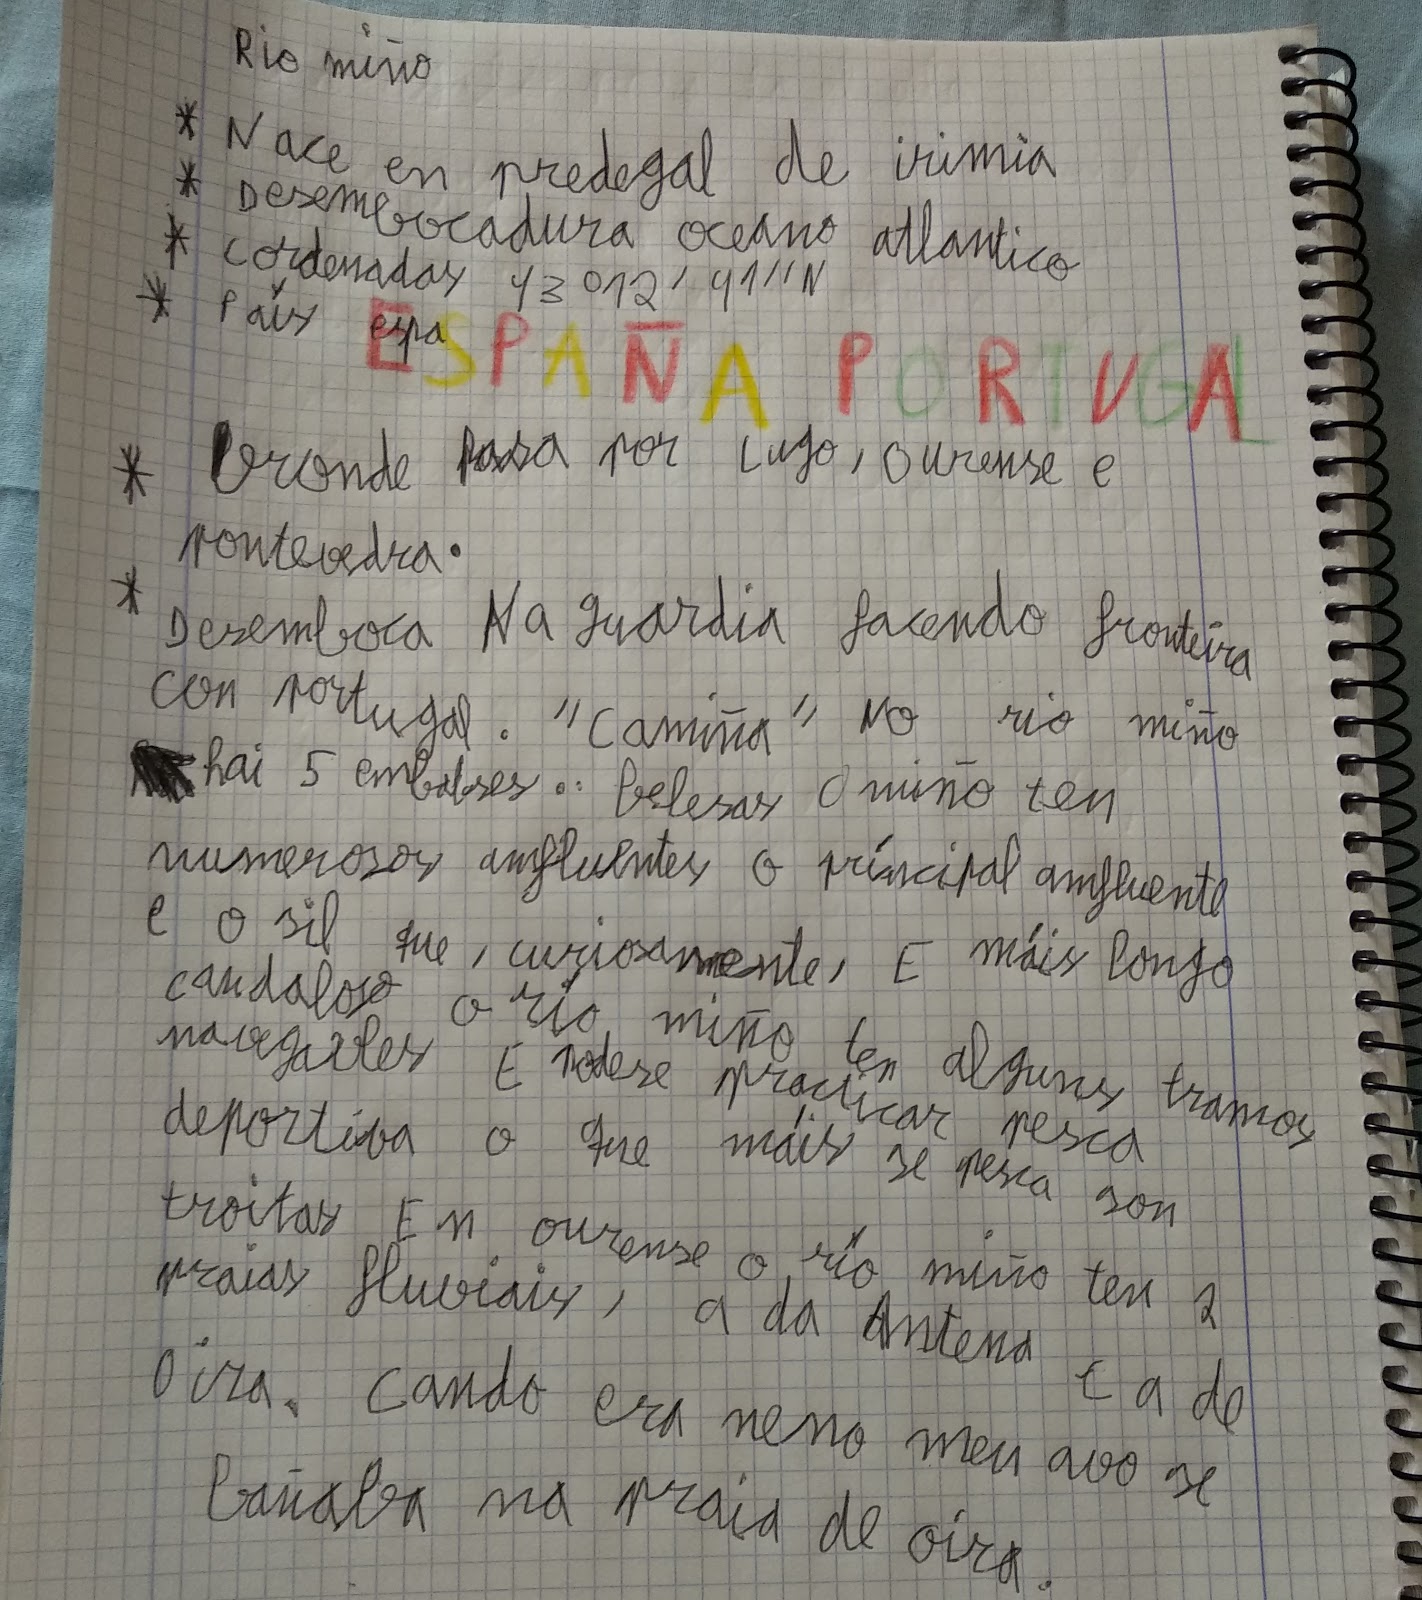 Rio miño
* Nace en predegal de irimia
* Desembocadura oceano atlantico
* cordenadas 43 012' 41''N
* País espa ESPAÑA PORTUGAL
* Dronde Pasa por Lugo, Ourense e
pontevedra.
* Desemboca Na guardia facendo fronteira
con portugal. "Camiña" No rio miño
hai 5 embalses.. belesas O miño ten
numerosos amfluentes o príncipal amfluente
e o sil que, curiosamente, E máis longo
caudaloso o río miño ten alguns tramos
navegables E podese practicar pesca
deportiva o que máis se pesca son
troitas En ourense o río miño ten 2
praias fluviais, a da Antena E a de
Oira. Cando era neno meu avo se
bañaba na praia de oira.